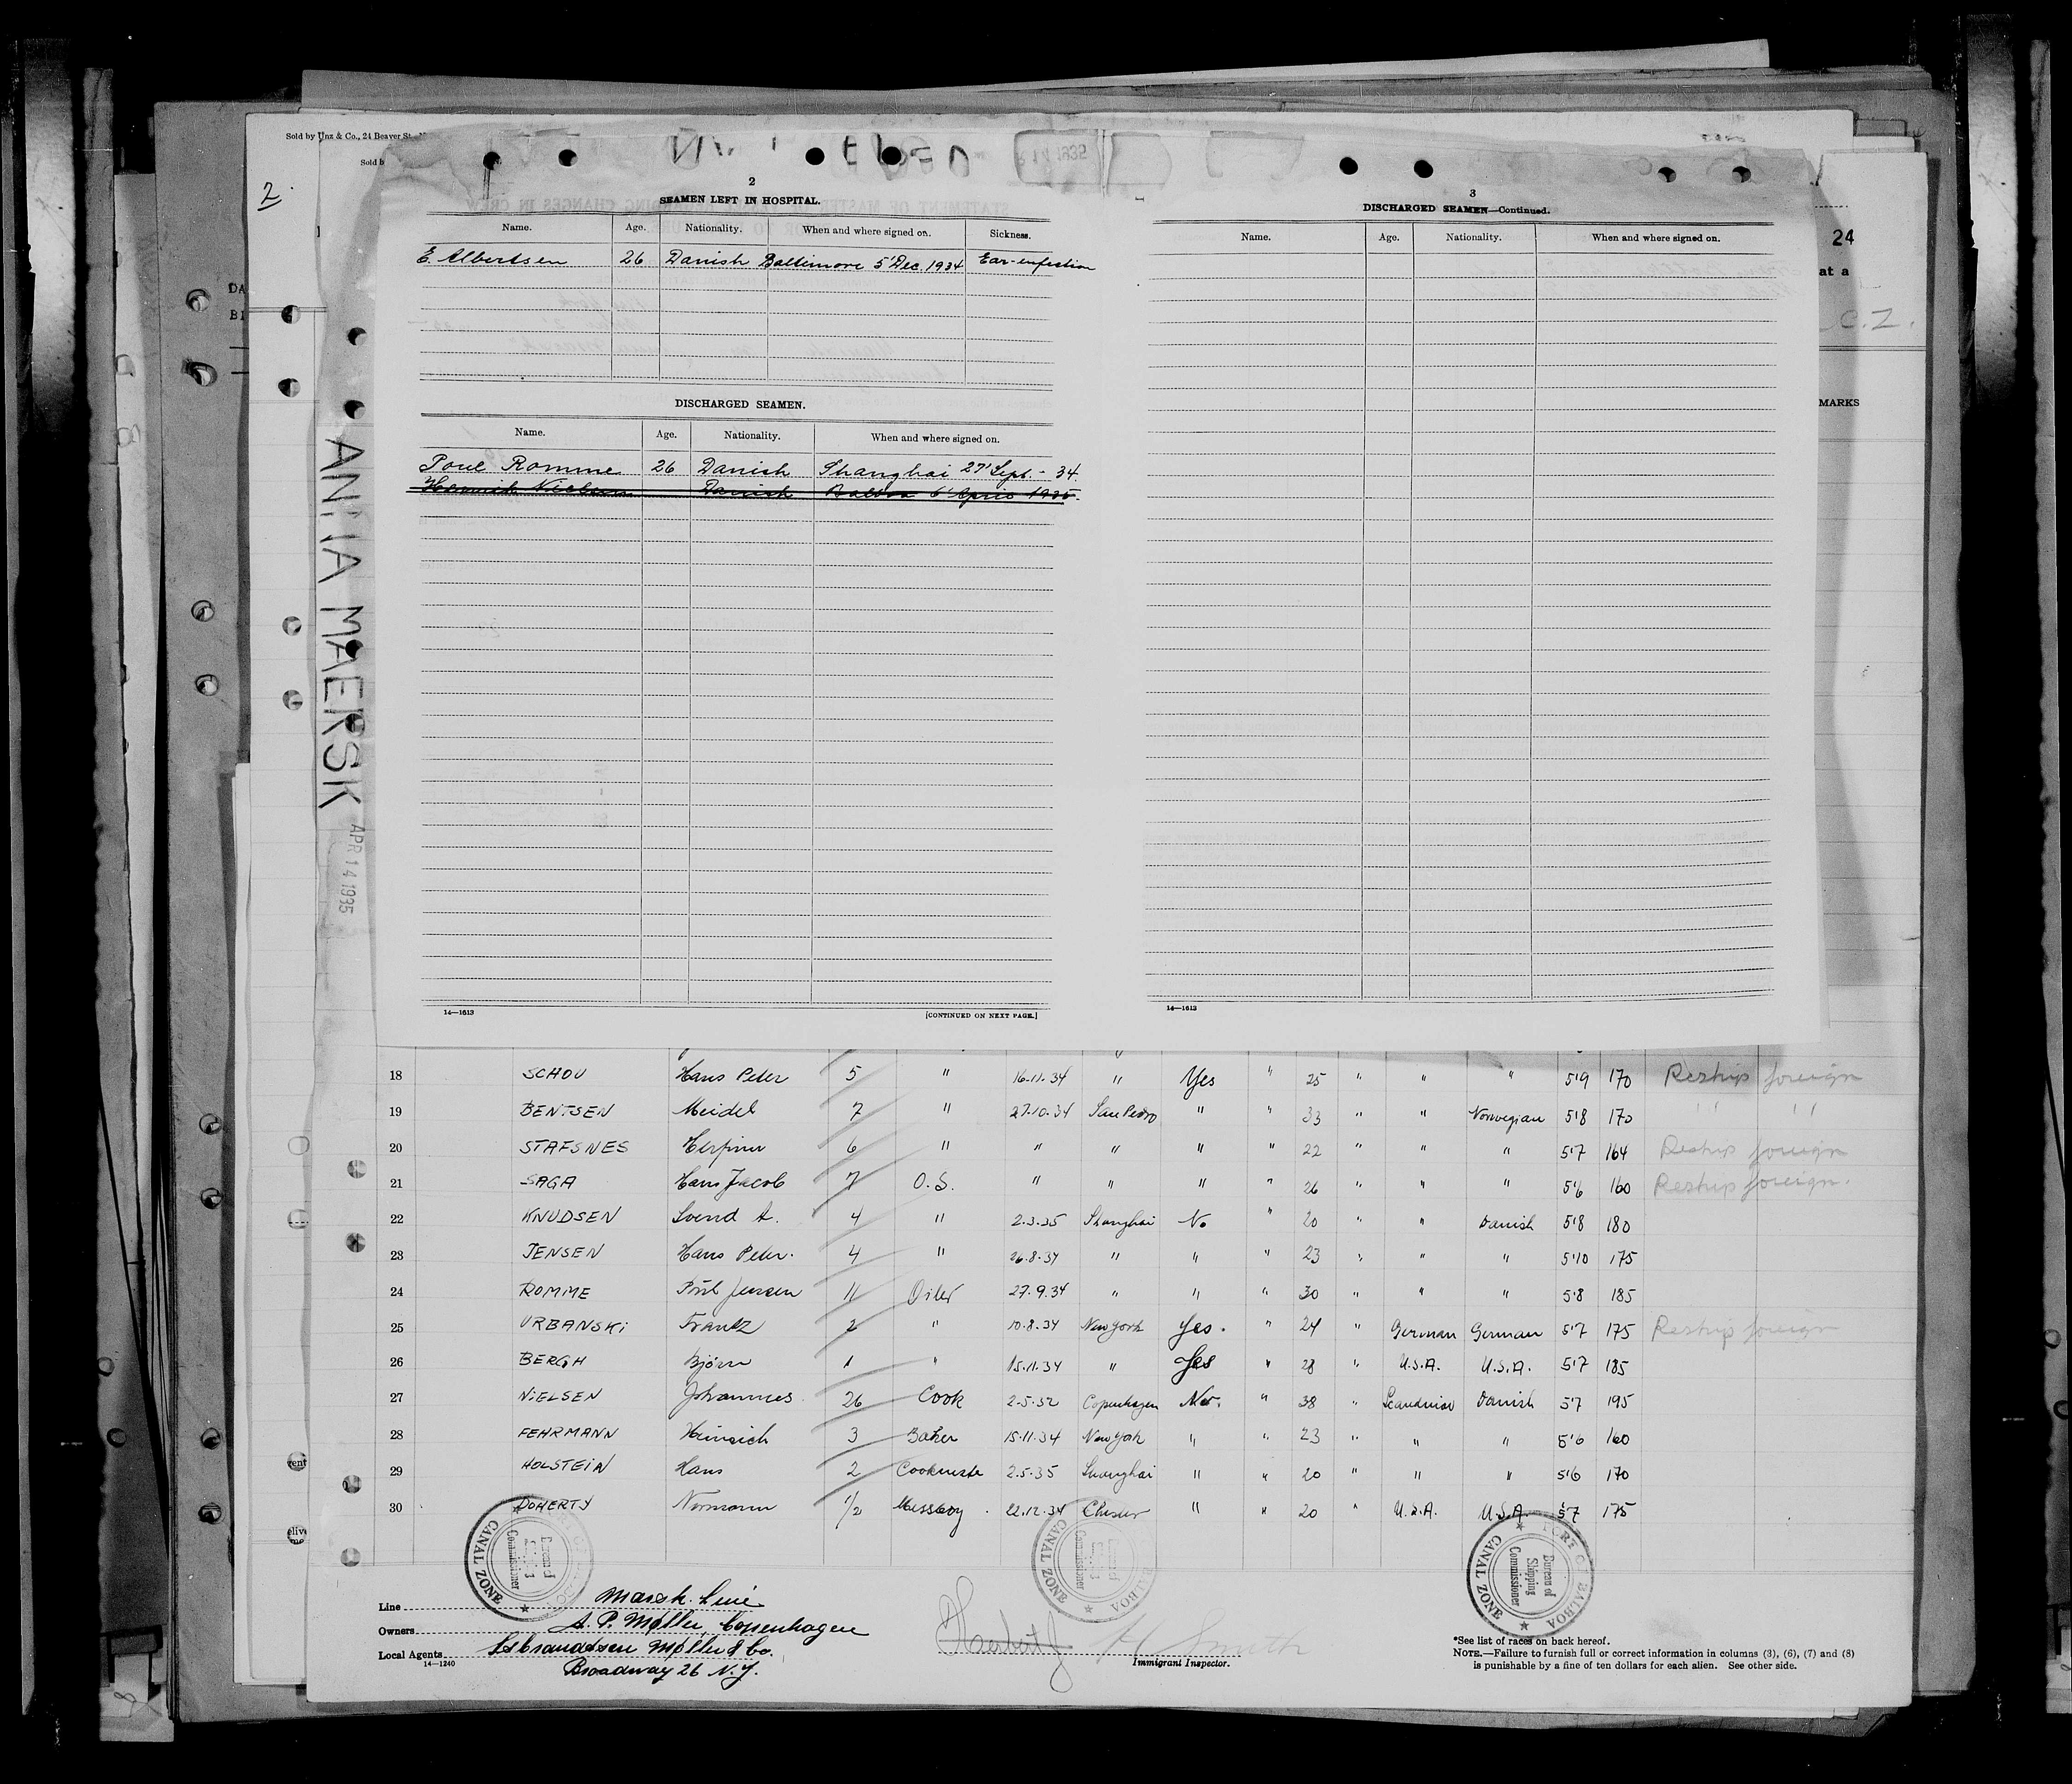 Sold by Unz & Co., 24 Beaver St.
Sold b
2
24
at a
C.Z.
MARKS
DA
BI
ANNA MAERSK
APR 14 1935
2
SEAMEN LEFT IN HOSPITAL.
Name. Age. Nationality. When and where signed on. Sickness.
E. Albertsen 26 Danish Baltimore 5' Dec. 1934 Ear-enfection
DISCHARGED SEAMEN.
Name. Age. Nationality. When and where signed on.
Poul Romme 26 Danish Shanghai 27' Sept - 34.
Nielsen Danish Balboa 6' April 1935.
14—1613 [CONTINUED ON NEXT PAGE.]
3
DISCHARGED SEAMEN—Continued.
Name. Age. Nationality. When and where signed on.
14—1613
18 SCHOU Hans Peter 5 " 16.11.34 " Yes " 25 " " " 5'9 170 Reship foreign
19 BENTSEN Meidel 7 " 27.10.34 San Pedro " " 33 " " Norwegian 5'8 170 " "
20 STAFSNES 6 " " " " " 22 " " " 5'7 164 Reship foreign
21 SAGA Hans Jacob 7 O.S. " " " " 26 " " " 5'6 160 Reship foreign.
22 KNUDSEN Svend A. 4 " 2.3.35 Shanghai No " 20 " " Danish 5'8 180
23 JENSEN Hans Peter. 4 " 26.8.34 " " " 23 " " " 5'10 175
24 ROMME Poul Jensen 11 Oiler 27.9.34 " " " 30 " " " 5'8 185
25 URBANSKi Frantz 2 " 10.8.34 New York Yes. " 24 " German German 5'7 175 Reship foreign
26 BERGH Bjørn 1 " 15.11.34 " Yes " 28 " U.S.A. U.S.A. 5'7 185
27 NiELSEN Johannes 26 Cook 2.5.32 Copenhagen No. " 38 " Scandinav Danish 5'7 195
28 FEHRMANN Heinrich 3 Baker 15.11.34 New York " " 23 " " " 5'6 160
29 HOLSTEiN Hans 2 Cooksmate 2.5.35 Shanghai " " 20 " " " 5'6 170
30 DOHERTY Normann 1/2 Messboy 22.12.34 Chester " " 20 " U.S.A. U.S.A. 5'7 175
PORT OF BALBOA CANAL ZONE
Bureau of Shipping Commissioner
PORT OF BALBOA CANAL ZONE
Bureau of Shipping Commissioner
PORT OF BALBOA CANAL ZONE
Bureau of Shipping Commissioner
Line Maersk Line
Owners A. P. Møller, Copenhagen
Local Agents Isbrandtsen Møller & Co.
14—1240
Broadway 26 N.Y.
Smith
Immigrant Inspector.
*See list of races on back hereof.
NOTE.—Failure to furnish full or correct information in columns (3), (6), (7) and (8)
is punishable by a fine of ten dollars for each alien. See other side.